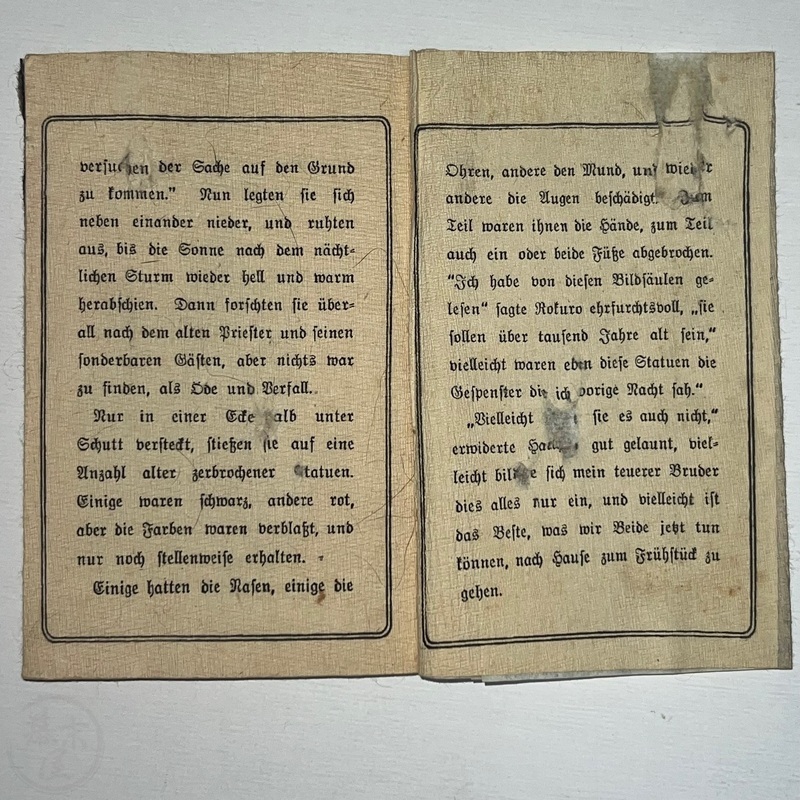 versuchen der Sache auf den Grund
zu kommen." Nun legten sie sich
neben einander nieder, und ruhten
aus, bis die Sonne nach dem nächt-
lichen Sturm wieder hell und warm
herabschien. Dann forschten sie über-
all nach dem alten Priester und seinen
sonderbaren Gästen, aber nichts war
zu finden, als Öde und Verfall.
Nur in einer Ecke halb unter
Schutt versteckt, stießen sie auf eine
Anzahl alter zerbrochener Statuen.
Einige waren schwarz, andere rot,
aber die Farben waren verblaßt, und
nur noch stellenweise erhalten.
Einige hatten die Nasen, einige die
Ohren, andere den Mund, und wieder
andere die Augen beschädigt. Zum
Teil waren ihnen die Hände, zum Teil
auch ein oder beide Füße abgebrochen.
"Ich habe von diesen Bildsäulen ge-
lesen" sagte Rokuro ehrfurchtsvoll, „sie
sollen über tausend Jahre alt sein,"
vielleicht waren eben diese Statuen die
Gespenster die ich vorige Nacht sah."
„Vielleicht sie es auch nicht,"
erwiderte gut gelaunt, viel-
leicht bildete sich mein teuerer Bruder
dies alles nur ein, und vielleicht ist
das Beste, was wir Beide jetzt tun
können, nach Hause zum Frühstück zu
gehen.